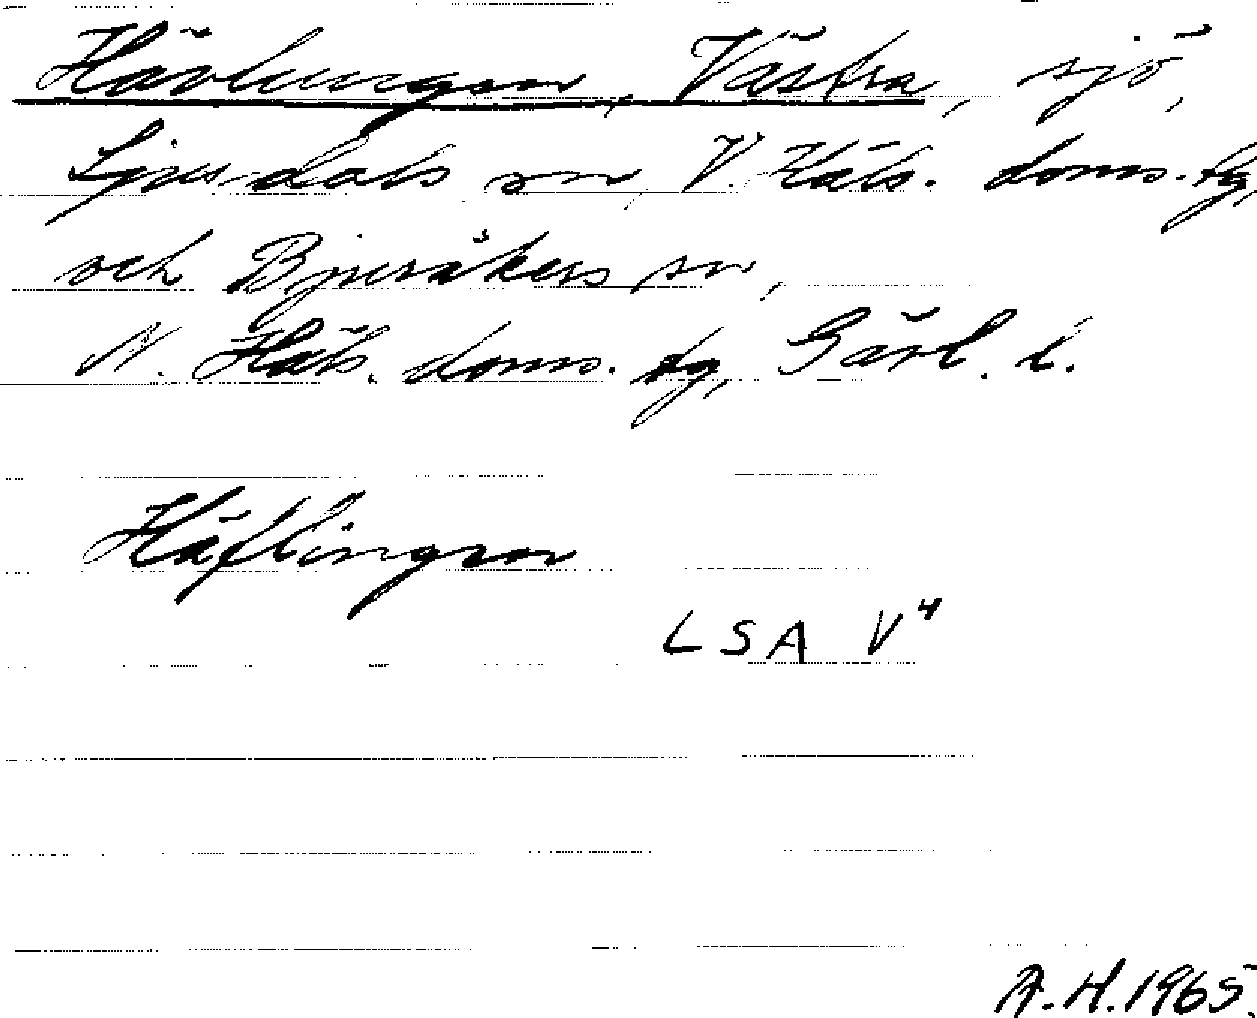 Hävlingen, Västra, sjö,
Ljusdals sn, V. Häls. doms.tg,
och Bjuråkers sn,
N. Häls. doms. tg, Gävl. l.
Häflingen
LSA V4
A.H.1965.